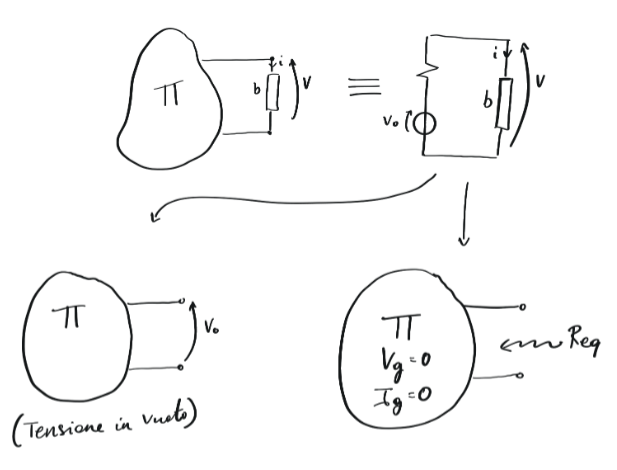 π
b
i
V
≡
V₀
i
b
V
π
V₀
(Tensione in vuoto)
π
Vg=0
Ig=0
Req